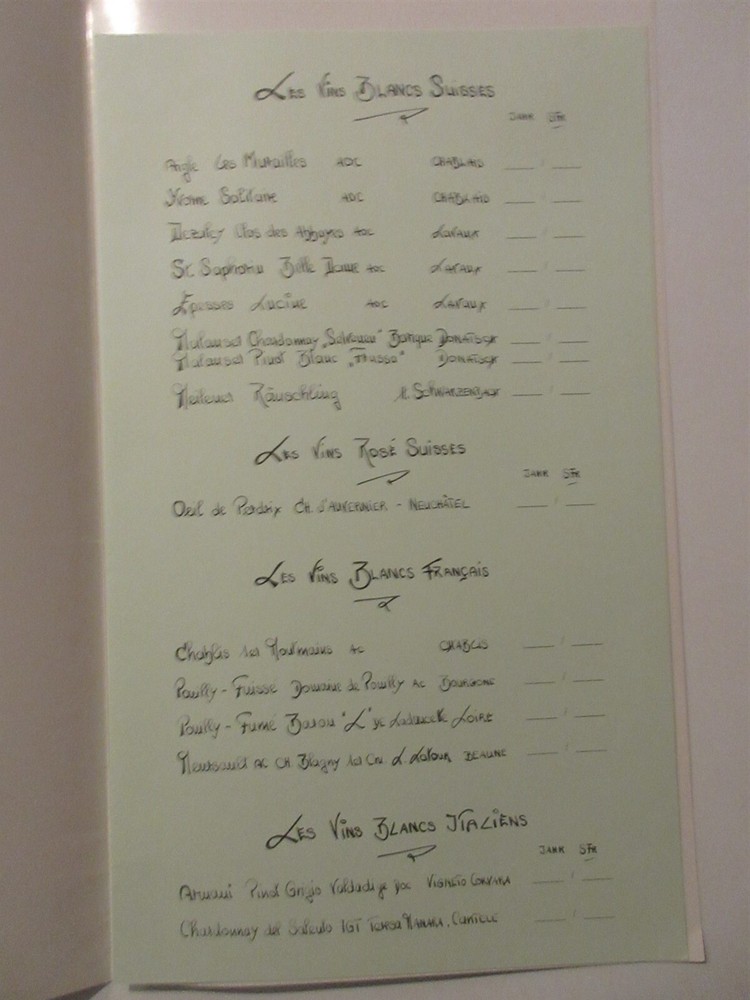 Les Vins Blancs Suisses
JAHR SFR
Aigle Les Murailles AOC CHABLAIS
Yvorne Solitaire AOC CHABLAIS
Dezaley Clos des Abbayes AOC LAVAUX
St. Saphorin Belle Dame AOC LAVAUX
Epesses Lucine AOC LAVAUX
Malanser Chardonnay Barrique DONATSCH
Malanser Pinot Blanc DONATSCH
Meilener Räuschling H. SCHWARZENBACH
Les Vins Rosé Suisses
JAHR SFR
Oeil de Perdrix CH. D'AUVERNIER - NEUCHÂTEL
Les Vins Blancs Français
Chablis 1er Montmains AC CHABLIS
Pouilly-Fuisse Domaine de Pouilly AC BOURGOGNE
Pouilly-Fumé Baron "L" DE Ladoucette LOIRE
Meursault AC CH. Blagny 1er Cru L. Latour BEAUNE
Les Vins Blancs Italiens
JAHR SFR
Pinot Grigio Valdadige DOC VIGNETO CORVARA
Chardonnay del Salento IGT